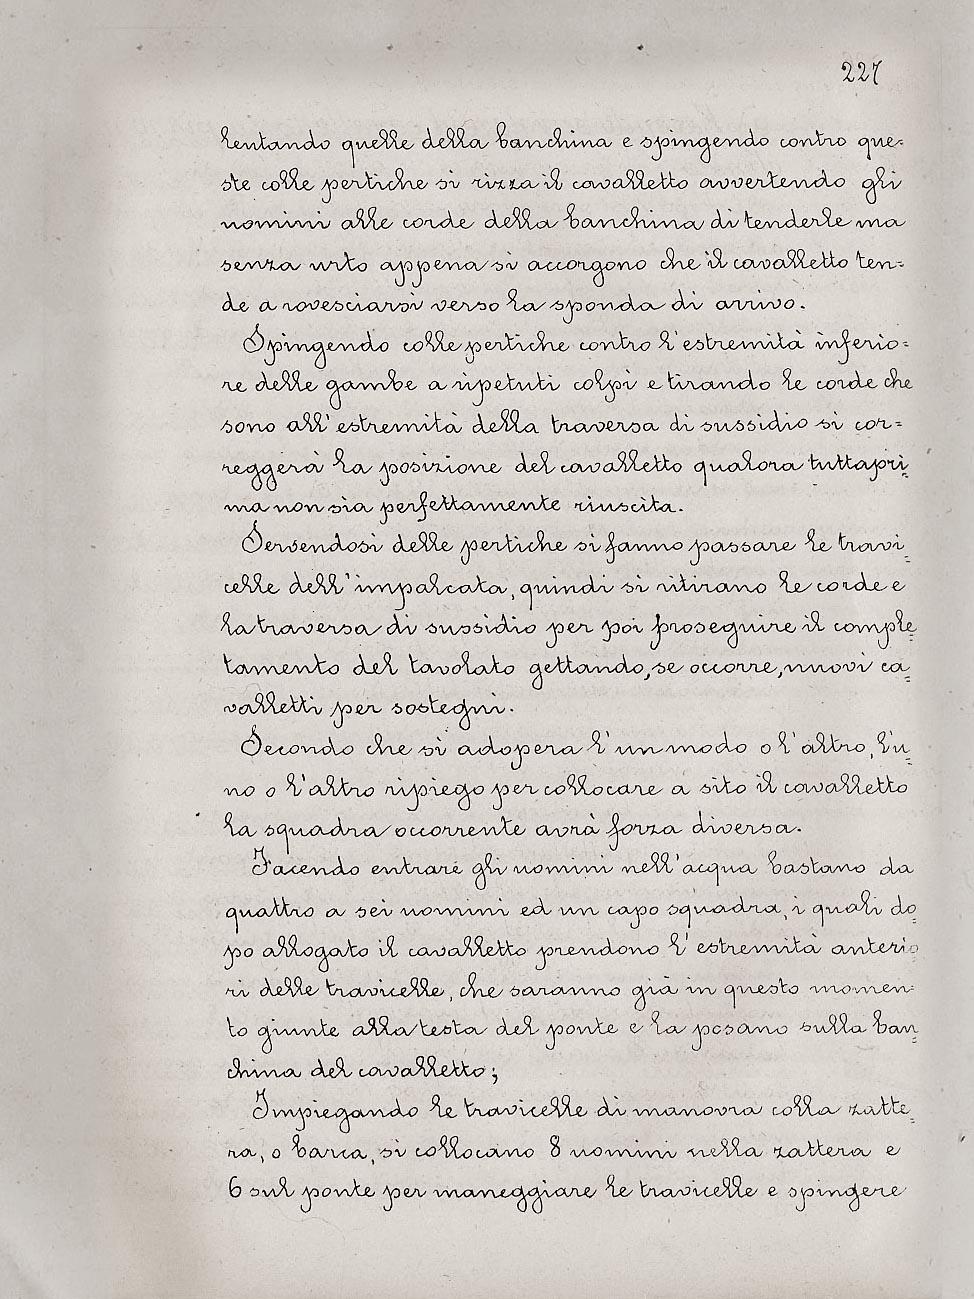 227
lentando quelle della banchina e spingendo contro que=
ste colle pertiche si rizza il cavalletto avvertendo gli
uomini alle corde della banchina di tenderle ma
senza urto appena si accorgono che il cavalletto ten=
de a rovesciarsi verso la sponda di arrivo.
Spingendo colle pertiche contro l'estremità inferio=
re delle gambe a ripetuti colpi e tirando le corde che
sono all'estremità della traversa di sussidio si cor=
reggerà la posizione del cavalletto qualora tuttapri=
ma non sia perfettamente riuscita.
Servendosi delle pertiche si fanno passare le travi=
celle dell'impalcata, quindi si ritirano le corde e
la traversa di sussidio per poi proseguire il comple=
tamento del tavolato gettando, se occorre, nuovi ca=
valletti per sostegni.
Secondo che si adopera l'un modo o l'altro, l'u=
no o l'altro ripiego per collocare a sito il cavalletto
la squadra occorrente avrà forza diversa.
Facendo entrare gli uomini nell'acqua bastano da
quattro a sei uomini ed un capo squadra, i quali do=
po allogato il cavalletto prendono l'estremità anterio
ri delle travicelle, che saranno già in questo momen=
to giunte alla testa del ponte e la posano sulla ban=
china del cavalletto;
Impiegando le travicelle di manovra colla zatte=
ra, o barca, si collocano 8 uomini nella zattera e
6 sul ponte per maneggiare le travicelle e spingere